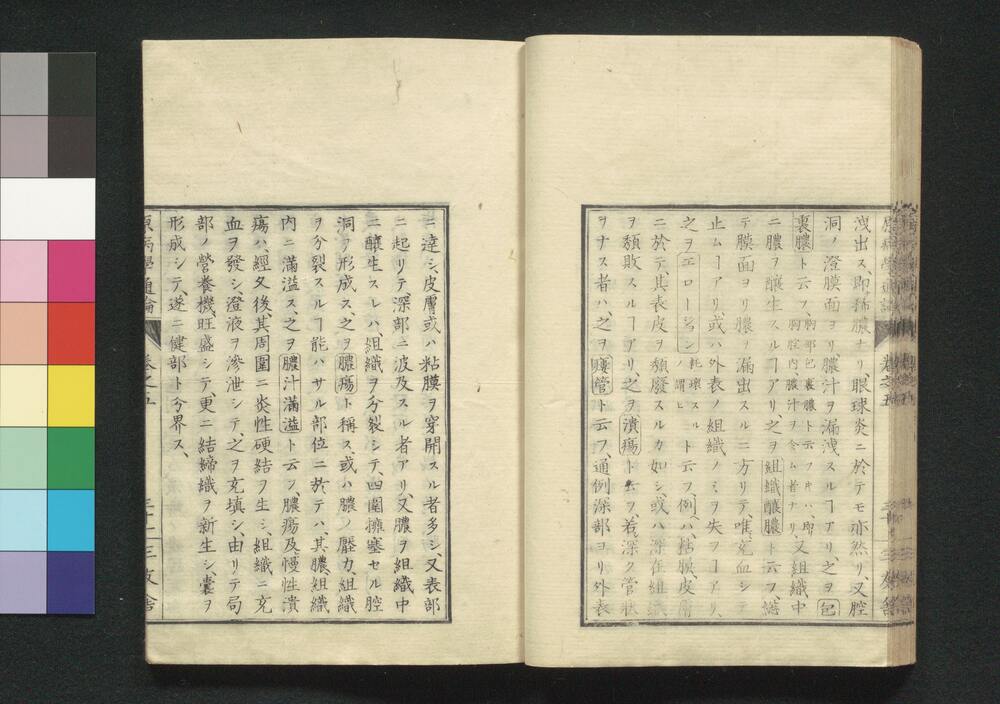 洩出ス、即稀膿ナリ眼球炎ニ於テモ亦然リ又腔
洞ノ澄膜面ヨリ、膿汁ヲ漏洩スルヿアリ、之ヲ包
裹膿ト云フ、胸部包裹膿ト云フ片ハ、即胸腔内、膿汁ヲ含ム者ナリ、又組織中
ニ膿ヲ釀生スルヿアリ、之ヲ組織釀膿ト云フ、
テ膜面ヨリ膿ヲ漏出スルニ方リテ、唯充血シ
止ムヿアリ或ハ外表ノ組織ノミヲ失フヿアリ、
之ヲエローシヲン耗壞スルノ謂ヒト云フ、例ハ、粘膜、皮膚
ニ於テ、其表皮ヲ頽廢スルカ如シ、或ハ深在組織
ヲ頽敗スルヿアリ、之ヲ潰瘍ト云フ、若深ク管狀
ヲナス者ハ、之ヲ瘻管ト云フ、通例深部ヨリ外表
ニ達シ、皮膚或ハ粘膜ヲ穿開スル者多シ、又表部
ニ起リテ、深部ニ波及スル者アリ、又膿ヲ組織中
ニ釀生スレハ、組織ヲ分裂シテ、四圍擁塞セル腔
洞ヲ形成ス、之ヲ膿瘍ト稱ス、或ハ膿ノ壓力、組織
ヲ分裂スルヿ能ハサル部位ニ於テハ、其膿、組織
内ニ滿溢ス、之ヲ膿汁滿溢ト云フ、膿瘍及慢性潰
瘍ハ、經久後、其周圍ニ炎性硬結ヲ生シ、組織ニ充
血ヲ發シ澄液ヲ滲泄シテ、之ヲ充填シ、由リテ局
部ノ營養機、旺盛シテ、更ニ結締織ヲ新生シ、囊ヲ
形成シテ、遂ニ健部ト分界ス、
原病學通論 卷之五